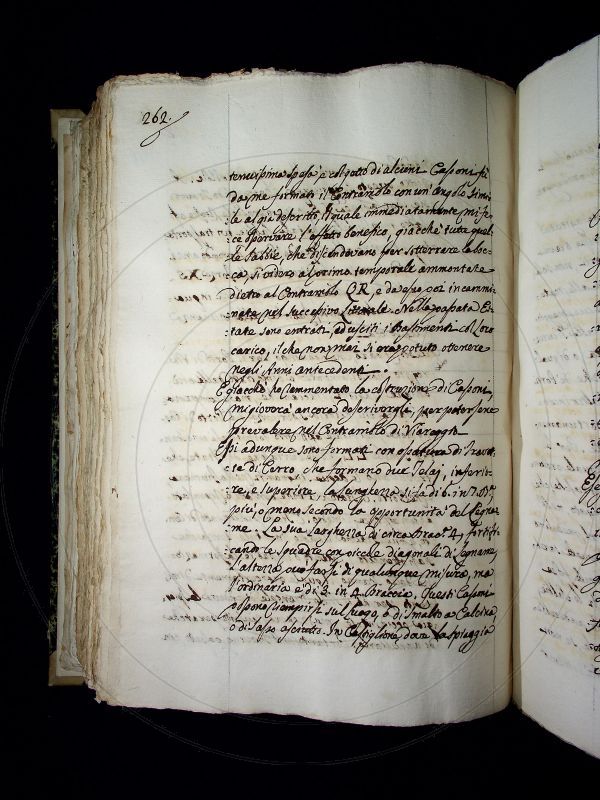 262.
tenuissima spesa e col getto di alcuni Cassoni fi
da me formati il Contramolo con un'angolo simi
le al già descritto, il quale immediatamente mi fe
ce osservare l'effetto benefico, giacchè tutte quel
le Sabbie, che discendevano per sotterrare la boc
ca, si videro al primo temporale ammontate
dietro al Contramolo QR, e da esso poi incammi
nate nel successivo Littorale. Nella passata E
state sono entrati, ed usciti i bastimenti col loro
carico, il che non mai si era potuto ottenere
negli Anni antecedenti.
E giacchè ho rammentato la costruzione di Cassoni,
mi gioverà ancora descriverla, per potersene
prevalere nel Contramolo di Viareggio
Essi adunque sono formati con ossatura di Travi
di Cerro che formano due Telaj, inferio
re, e superiore, la lunghezza si fa di 6. in 7. Bra
più, o meno secondo la opportunità del Legna
me. La sua larghezza di circa Brac. 4 fortifi
cando le squadre con piccole diagonali di legname,
l'altezza può farsi di qualunque misura, ma
l'ordinaria è di 3 in 4 Braccia. Questi Cassoni
possono riempirsi sul luogo, o di Smalto a Calcina,
o di Sasso a secco. In Castiglione, dove la spiaggia